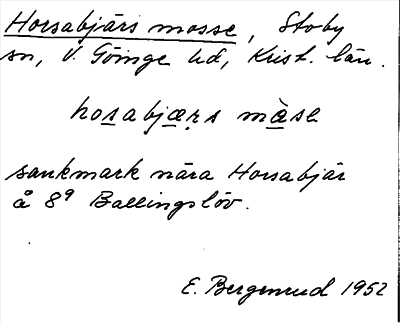 Horsabjärs mosse, Stoby
sn, V. Göinge hd, Krist. län.
hosabjærs màse
sankmark nära Horsabjär
å 8⁹ Ballingslöv.
E. Bergenrud 1952